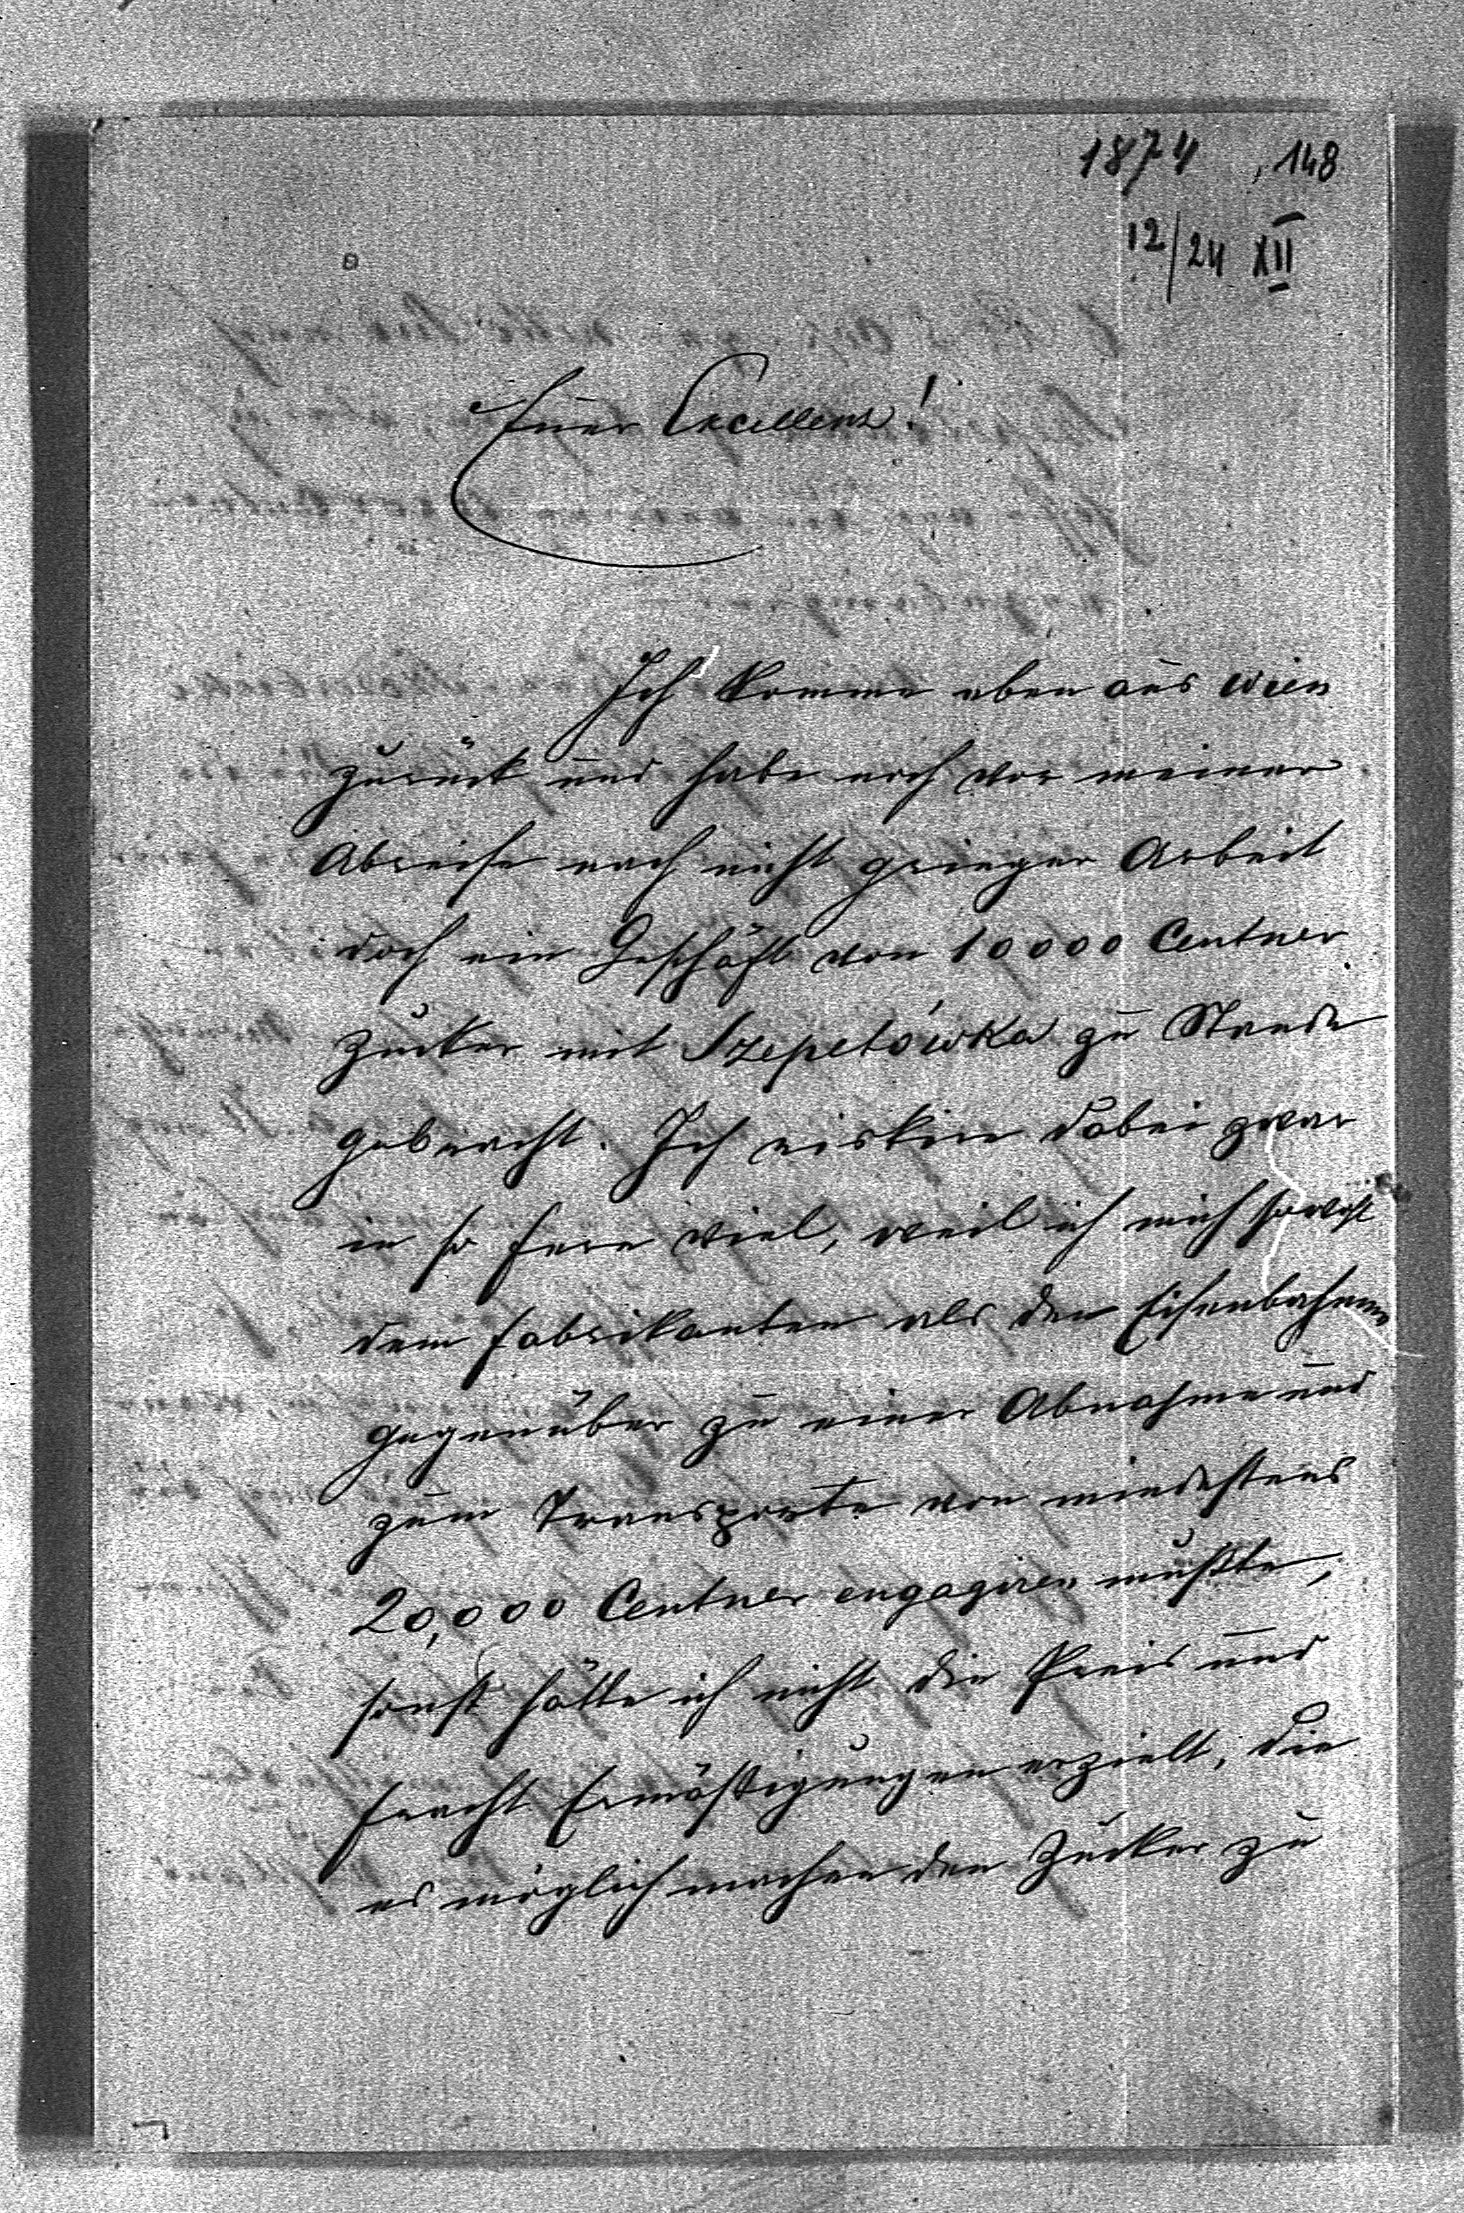 1874 , 148
12/24 XII
Euer Excellenz!
Ich komme eben aus Wien
zurück und habe noch vor meiner
Abreise nach nicht gringer Arbeit
doch ein Geschäft von 10000 Centner
Zucker mit Szepetówka zu Stande
gebracht. Ich riskire dabei zwar
in so fern viel, weil ich mich sowohl
dem Fabrikanten als den Eisenbahnen
gegenüber zu einer Abnahme und
zum Transporte von mindestens
20,000 Centner engagiren mußte,
sonst hätte ich nicht die Preis und
Fracht Ermäßigungen erzielt, die
es möglich machen den Zucker zu